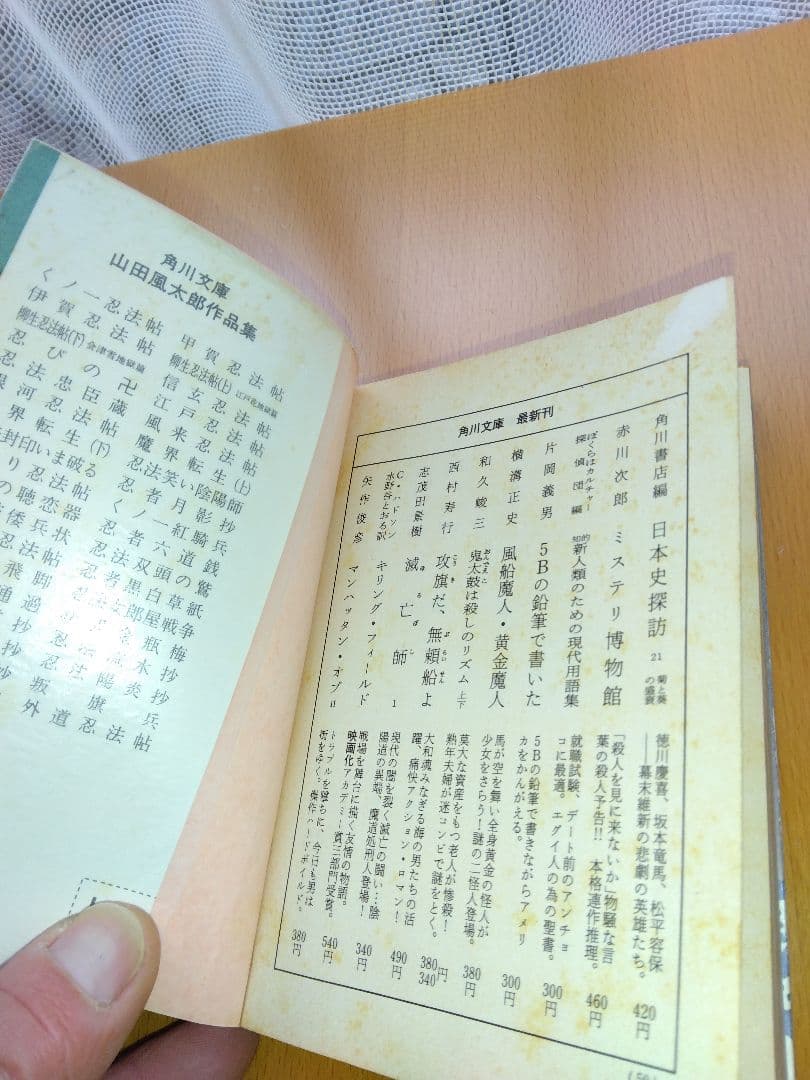 角川文庫
山田風太郎作品集
くノ一忍法帖 甲賀忍法帖
伊賀忍法帖 柳生忍法帖(上) 江戸花地獄篇
柳生忍法帖(下) 会津雪地獄篇 信玄忍法帖
忍びの卍 江戸忍法帖
忍法忠臣蔵 風来忍法帖
銀河忍法帖 魔界転生(上)
界転生(下) 忍法笑い陰陽師
封印いま破る 忍者月影抄
り忍法帖 くノ一紅騎兵
の聴恋器 忍者六道銭
倭兵状 忍法双頭の鷲
忍法帖 忍者黒白草紙
飛脚 女郎屋戦争
通過 金瓶梅
抄 木抄
抄 忍法陽炎抄
抄 叛旗兵
外道忍法帖
角川文庫 最新刊
角川書店編 日本史探訪 21 菊と葵の盛衰 徳川慶喜、坂本竜馬、松平容保――幕末維新の悲劇の英雄たち。 420円
赤川次郎 ミステリ博物館 「殺人を見に来ないか」物騒な言葉の殺人予告!! 本格連作推理。 460円
ぼくらはカルチャー探偵団編 知的新人類のための現代用語集 就職試験、デート前のアンチョコに最適。エグイ人の為の聖書。 300円
片岡義男 5Bの鉛筆で書いた 5Bの鉛筆で書きながらアメリカをかんがえる。 300円
横溝正史 風船魔人・黄金魔人 馬が空を舞い全身黄金の怪人が少女をさらう!謎の二怪人登場。 380円
和久峻三 鬼太鼓は殺しのリズム 上下 莫大な資産をもつ老人が惨殺!熟年夫婦が迷コンビで謎をとく。 380円 340
西村寿行 攻旗だ、無頼船よ 大和魂みなぎる海の男たちの活躍、痛快アクション・ロマン! 490円
志茂田景樹 滅亡師 1 現代の闇を裂く滅亡の闘い…陰陽道の異端、魔道処刑人登場! 340円
C・ハドソン 水野谷とおる訳 キリング・フィールド 戦場を舞台に描く友情の物語。映画化アカデミー賞三部門受賞。 540円
矢作俊彦 マンハッタン・オプII トラブルを餌ちに、今日も男は街をゆく。傑作ハードボイルド。 380円